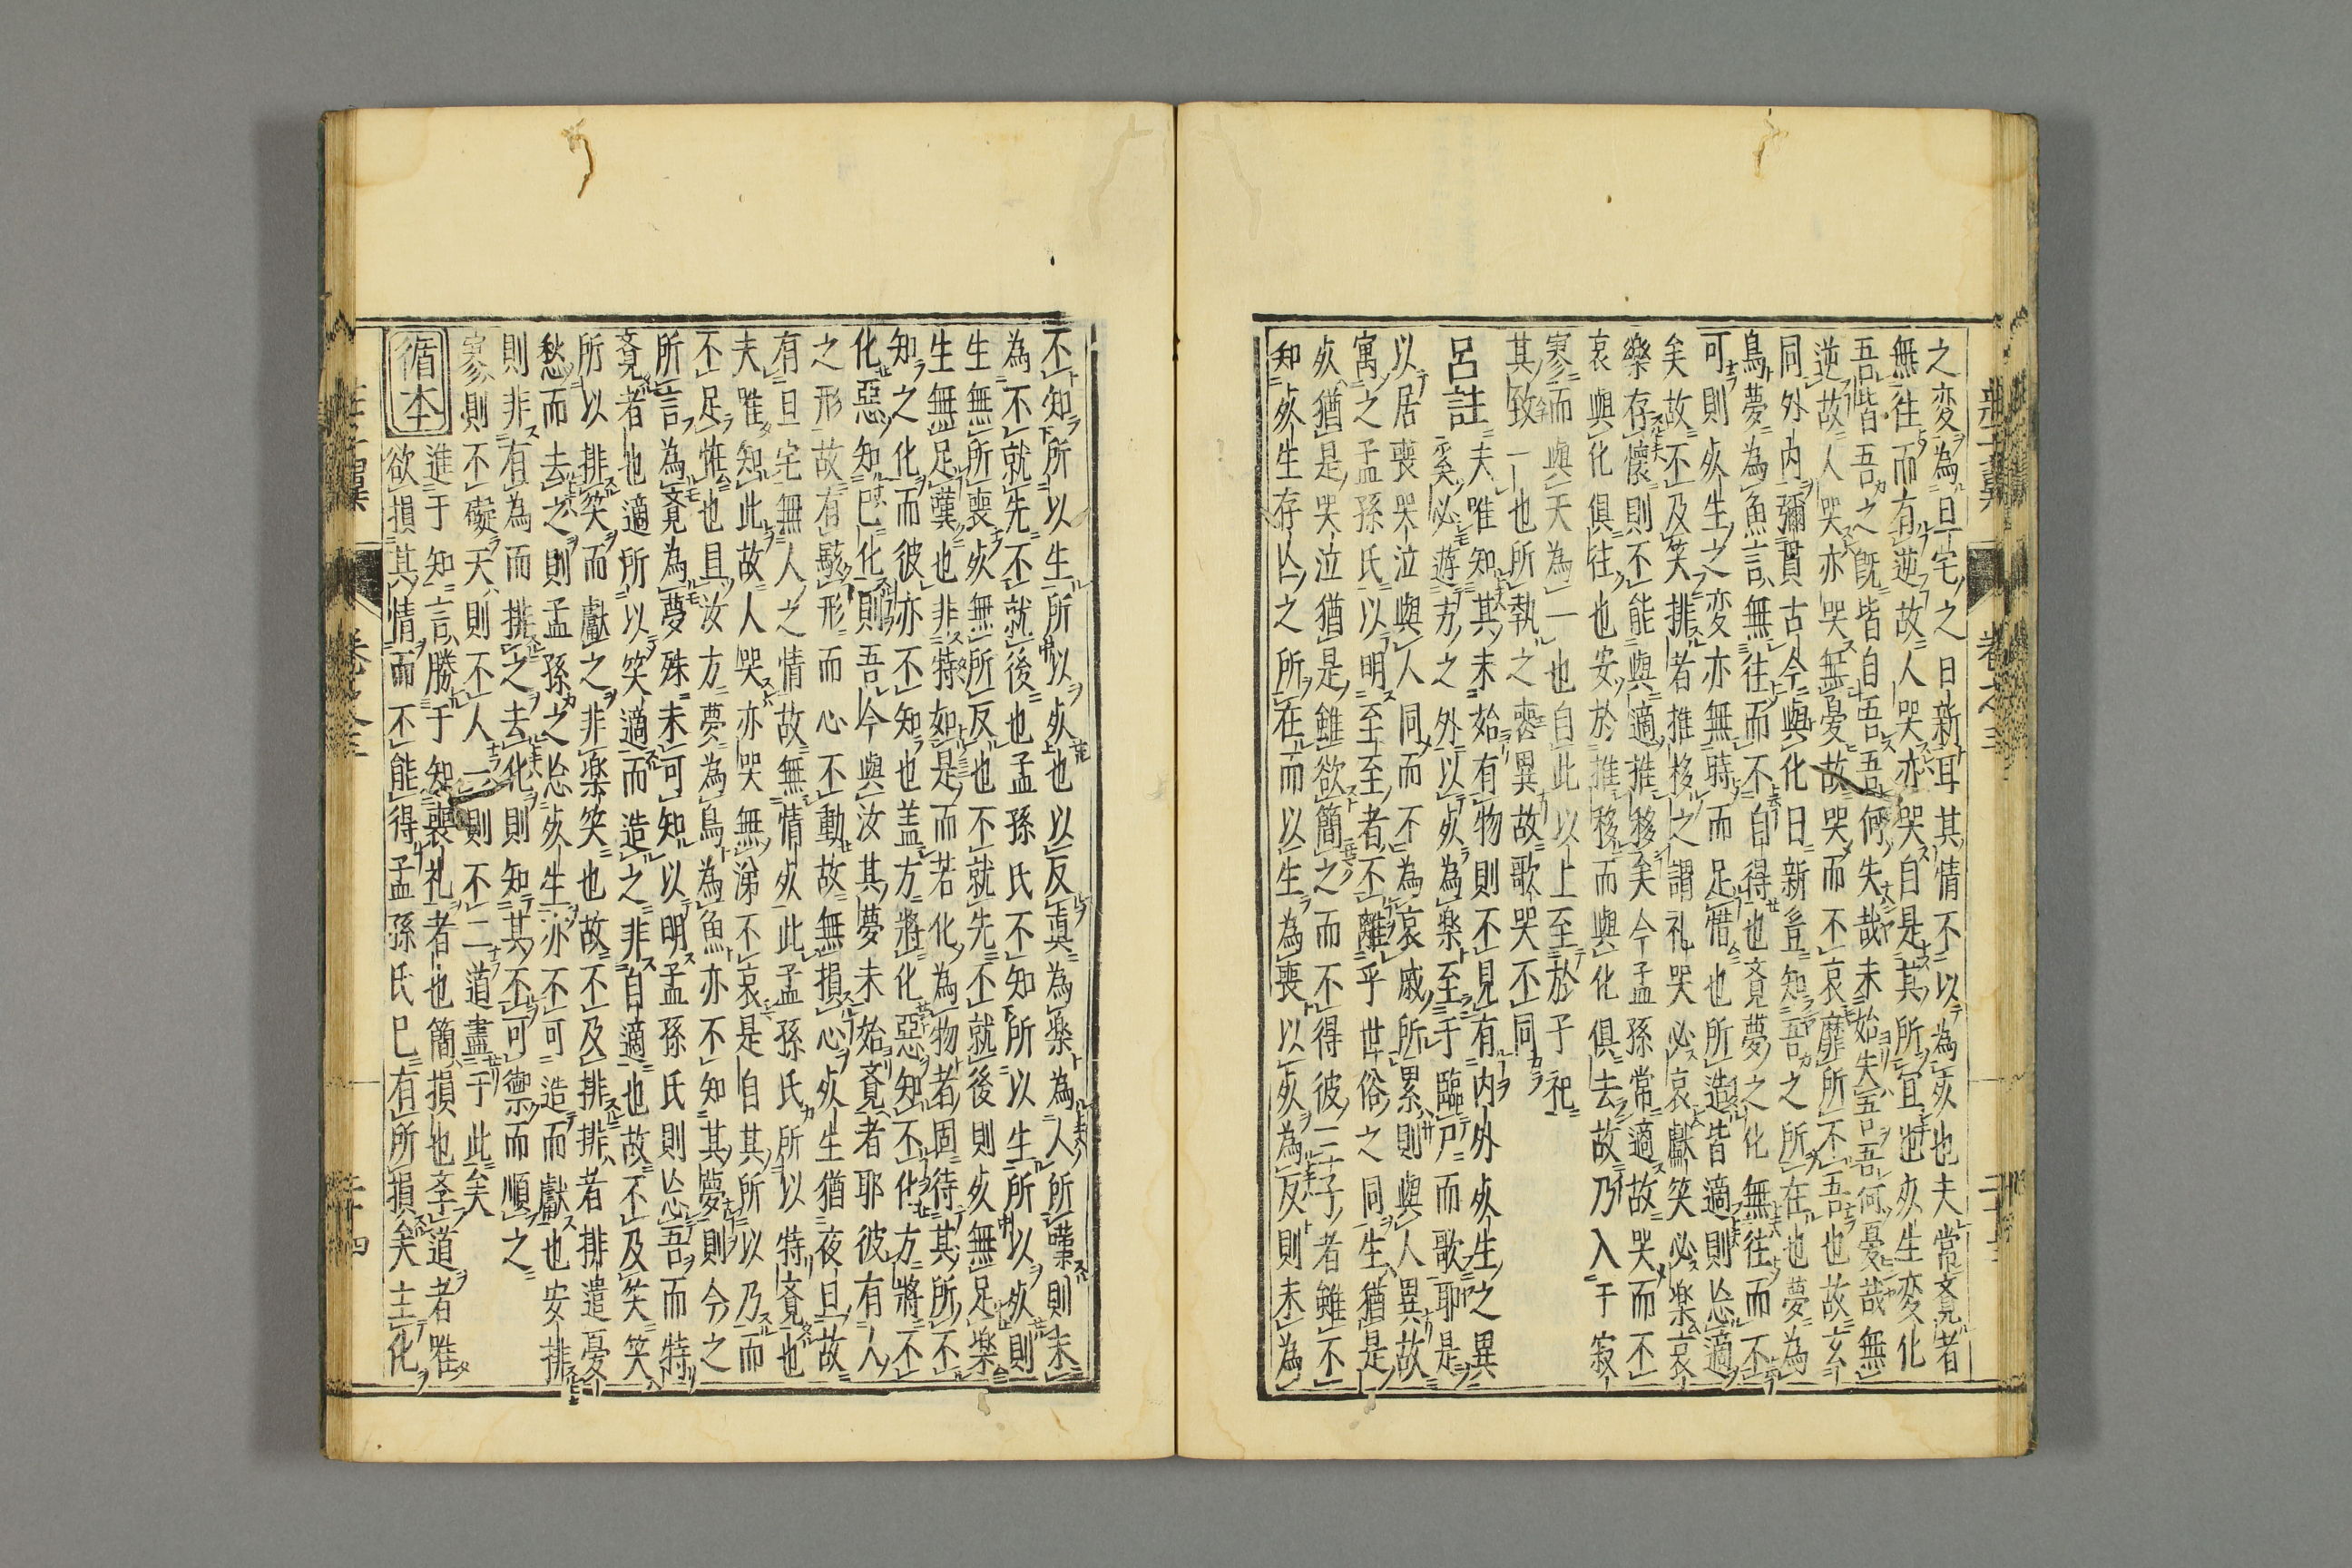 之変為旦宅之日新耳其情不以為死也夫常覔者
無往而有逆故人哭亦哭自是其所宜也死生変化
吾皆吾之既皆自吾吾何失哉未始失吾吾何憂哉無
逆故人哭亦哭無憂故哭而不哀靡所不吾也故玄
同外内彌貫古今與化日新豈知吾之所在也夢為
鳥夢為魚言無往而不自得也覔夢之化無往而不
可則死生之変亦無時而足惜也所造皆適則忘適
矣故不及笑排者推移之謂礼哭必哀獻笑必楽哀
樂存懷則不能與適推移矣今孟孫常適故哭而不
哀與化俱往也安於推移而與化俱去故乃入于寂
寥而與天為一也自此以上至於子祀
其致一也所執之喪異故歌哭不同
呂註夫唯知其未始有物則不見有内外死生之異
奚必遊方之外以死為樂至于臨尸而歌耶是
以居喪哭泣與人同而不為哀戚所累則與人異故
寓之孟孫氏以明至至者不離乎世俗之同生猶是
死猶是哭泣猶是雖欲簡之而不得彼三子者雖不
知死生存亡之所在而以生為喪以死為反則未為
不知所以生所以死也以反真為楽為人所嘆則未
為不就先不就後也孟孫氏不知所以生所以死則
生無所喪死無所反也不就先不就後則死無足樂
生無足嘆也非特如是而若化為物者固待其所不
知之化而彼亦不知也蓋方將化惡知不化方將不
化惡知已化則吾今與汝其夢未始覔者耶彼有人
之形故有駭形而心不動故無損心死生猶夜旦故
有旦宅無人之情故無情死此孟孫氏所以特覔也
夫唯知此故人哭亦哭無涕不哀是自其所以乃而
不足恠也且汝方夢為鳥為魚亦不知其夢則今之
所言為覔為夢殊未可知以明孟孫氏則忘吾而特
覔者也適所以笑適而造之非自適也故不及笑笑
所以排笑而獻之非楽笑也故不及排排者排遣憂
愁而去之則孟孫之忘死生亦不可造而獻也安排
則非有為而排之去化則知其不可禦而順之
寥則不礙天則不人一則不二道盡于此矣
循本進于知言勝于知喪礼者也簡損也孝道者唯
欲損其情而不能得孟孫氏已有所損矣主化